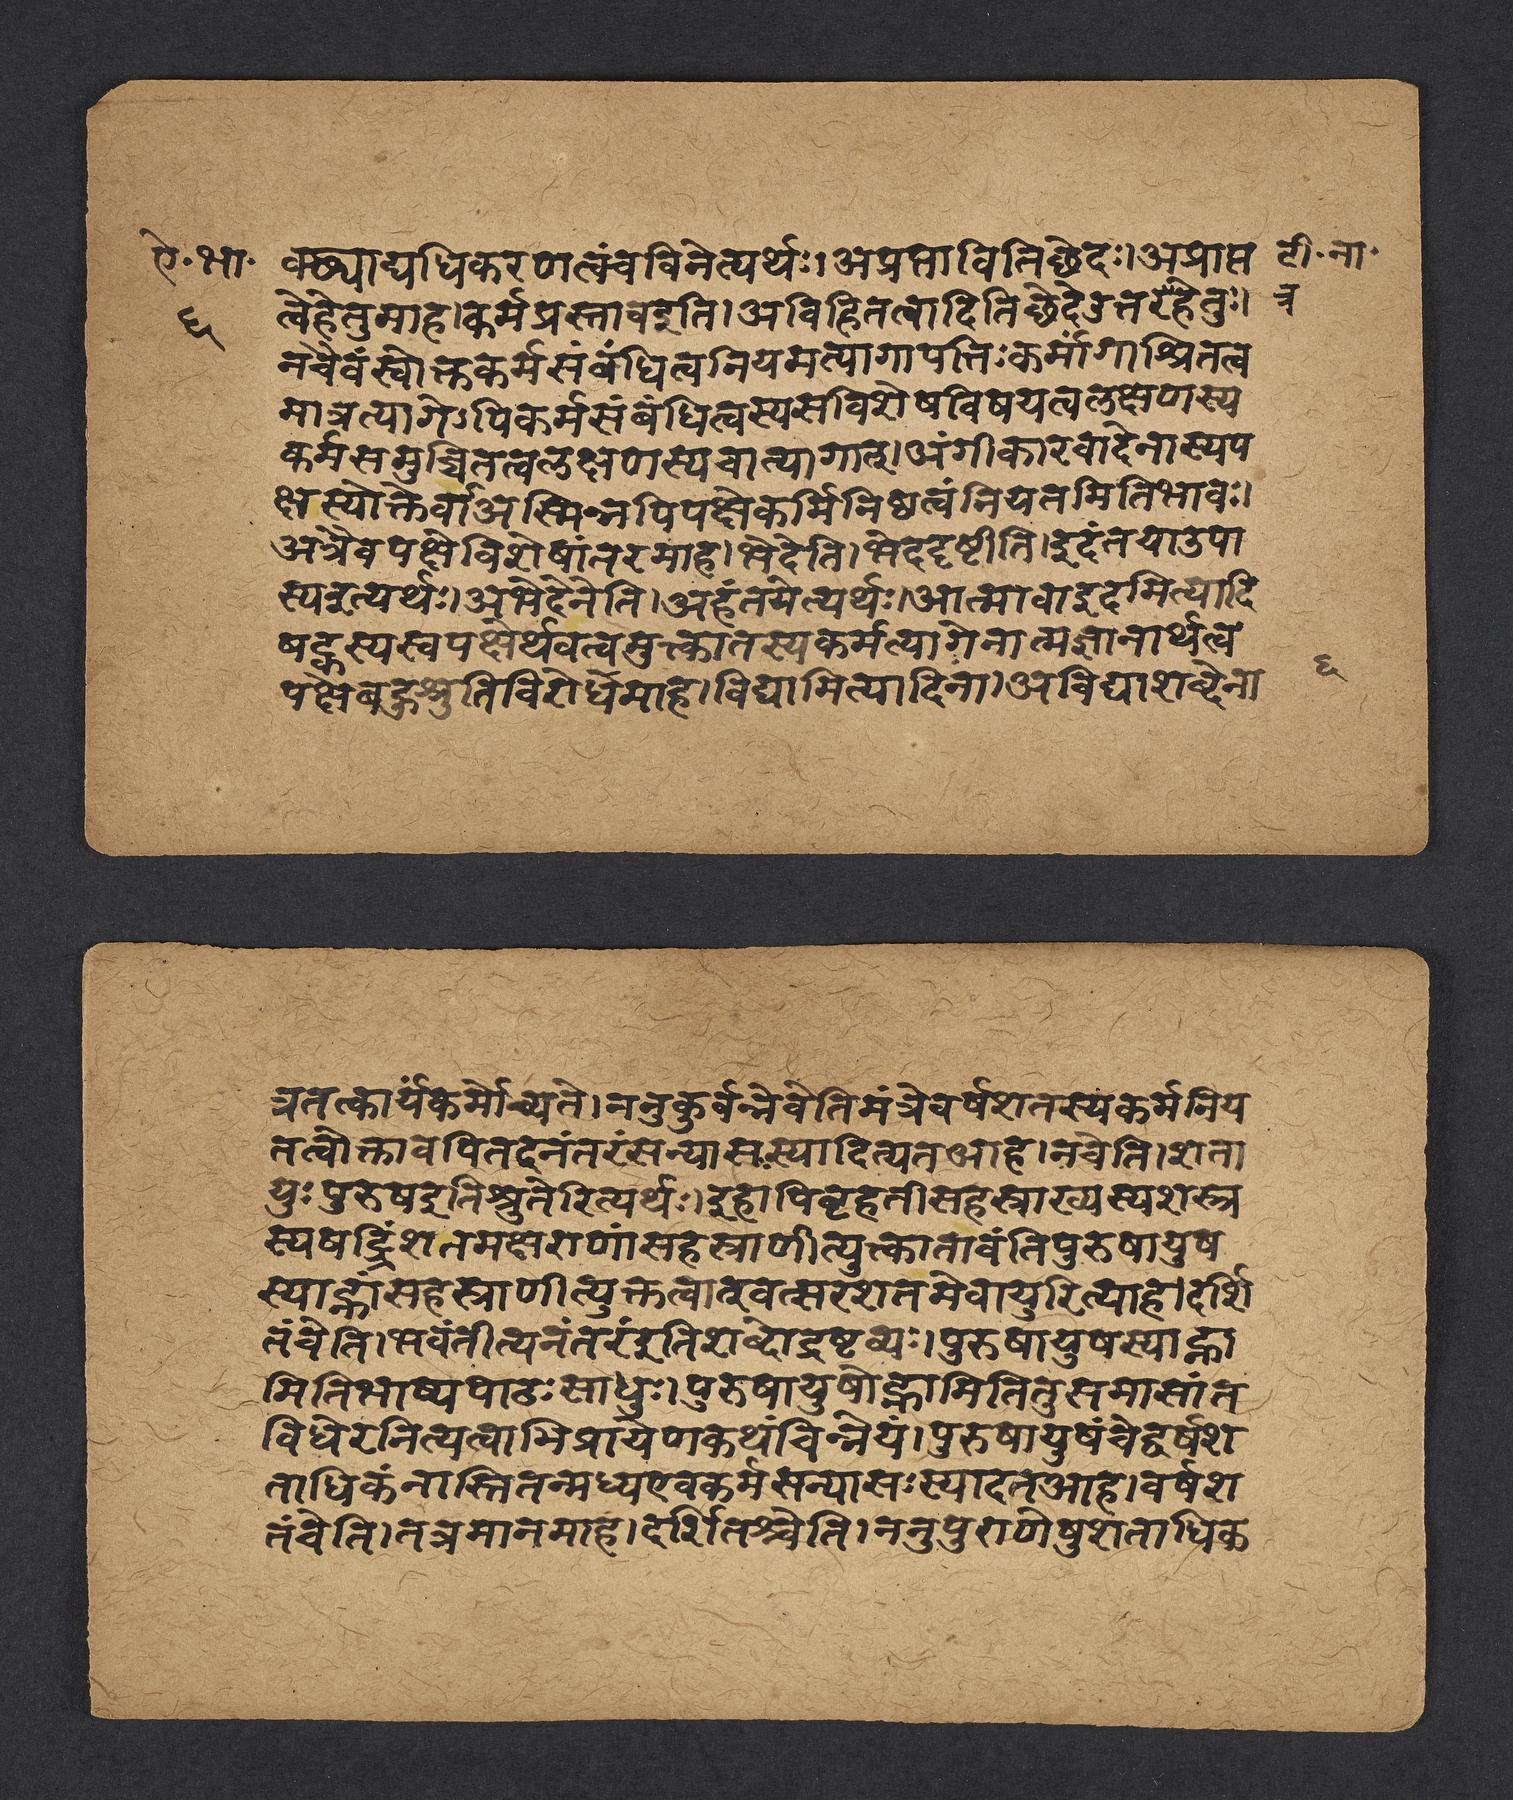 ऐ·भा· वच्छ्याद्यधिकरणत्वंचविनेत्यर्थः।अप्रप्तावितिछेदः।अप्राप्त टी·ना·
६ त्वेहेतुमाह।कर्मप्रस्तावइति।अविहितत्वादितिछेदेऽउत्तरहेतुः। त्र
नचैवंस्वोक्तकर्मसंबंधित्वनियमत्यागापत्तिःकर्मांगाश्रितत्व
मात्रत्यागेऽपिकर्मसंबंधित्वस्यसविशेषविषयत्वलक्षणस्य
कर्मसमुच्चितत्वलक्षणस्यचात्यागात्।अंगीकारवादेनास्यप
क्षस्योक्तेर्वाअस्मिन्नपिपक्षेकर्मिनिष्ठत्वंनियतमितिभावः।
अत्रैवपक्षेविशेषांतरमाह।भेदेति।भेददृष्टीति।इदंतयाउपा
स्यइत्यर्थः।अभेदेनेति।अहंतयेत्यर्थः।आत्मावाइदमित्यादि
षट्कस्यस्वपक्षेर्थवत्वमुक्त्वातस्यकर्मत्यागेनात्मज्ञानार्थत्व
पक्षेबहुश्रुतिविरोधमाह।विद्यामित्यादिना।अविद्याशब्देना ६
त्रतत्कार्यंकर्मोच्यते।ननुकुर्वन्नेवेतिमंत्रेवर्षशतस्यकर्मनिय
तत्वोक्तावपितदनंतरंसन्यासःस्यादित्यतआह।नचेति।शता
युःपुरुषइतिश्रुतेरित्यर्थः।इहापिबृहतीसहस्राख्यस्यशस्त्र
स्यषट्त्रिंशतमक्षराणांसहस्त्राणीत्युक्त्वातावंतिपुरुषायुष
स्याह्नांसहस्त्राणीत्युक्तत्वात्वत्सरशतमेवायुरित्याह।दर्शि
तंचेति।भवंतीत्यनंतरंइतिशब्दोद्रष्टव्यः।पुरुषायुषस्याह्ना
मितिभाष्यपाठःसाधुः।पुरुषायुषोह्नामितितुसमासांत
विधेरनित्यत्वाभिप्रायेणकथंचिन्नेयं।पुरुषायुषंचेद्वर्षश
ताधिकंनास्तितन्मध्यएवकर्मसन्यासःस्यादतआह।वर्षश
तंचेति।तत्रमानमाह।दर्शितश्चेति।ननुपुराणेषुशताधिक